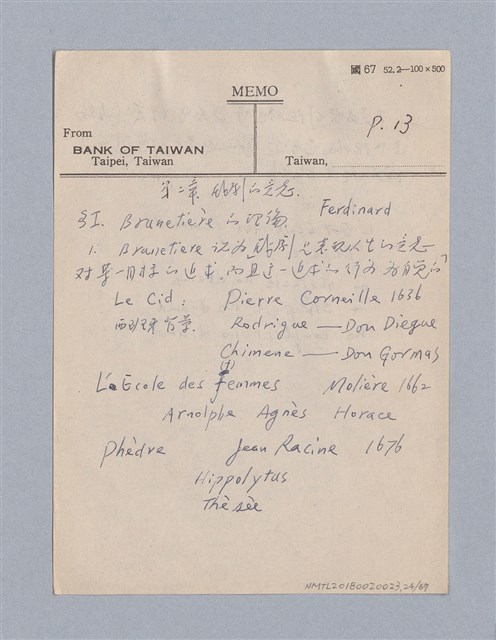 國 67 52.2—100×500
MEMO
P. 13
From
BANK OF TAIWAN
Taipei, Taiwan
Taiwan,
第二章 戲劇的意志
§I. Brunetière 的理論 Ferdinand
1. Brunetiere 認為戲劇是表現人生的意志
對某一目標的追求而且這一追求的行為為自覺的
Le Cid : Pierre Corneille 1636
西班牙背景. Rodrigue — Don Diegue
Chimene — Don Gormas
(f)
L'Ecole des femmes Molière 1662
Arnolphe Agnès Horace
Phèdre Jean Racine 1676
Hippolytus
Thèsèe
NMTL20180020023,24/69